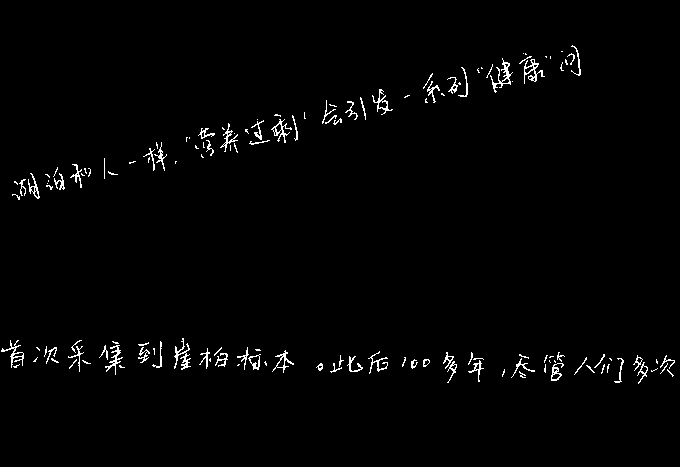 湖泊和人一样，“营养过剩”会引发一系列“健康”问
首次采集到崖柏标本。此后100多年，尽管人们多次